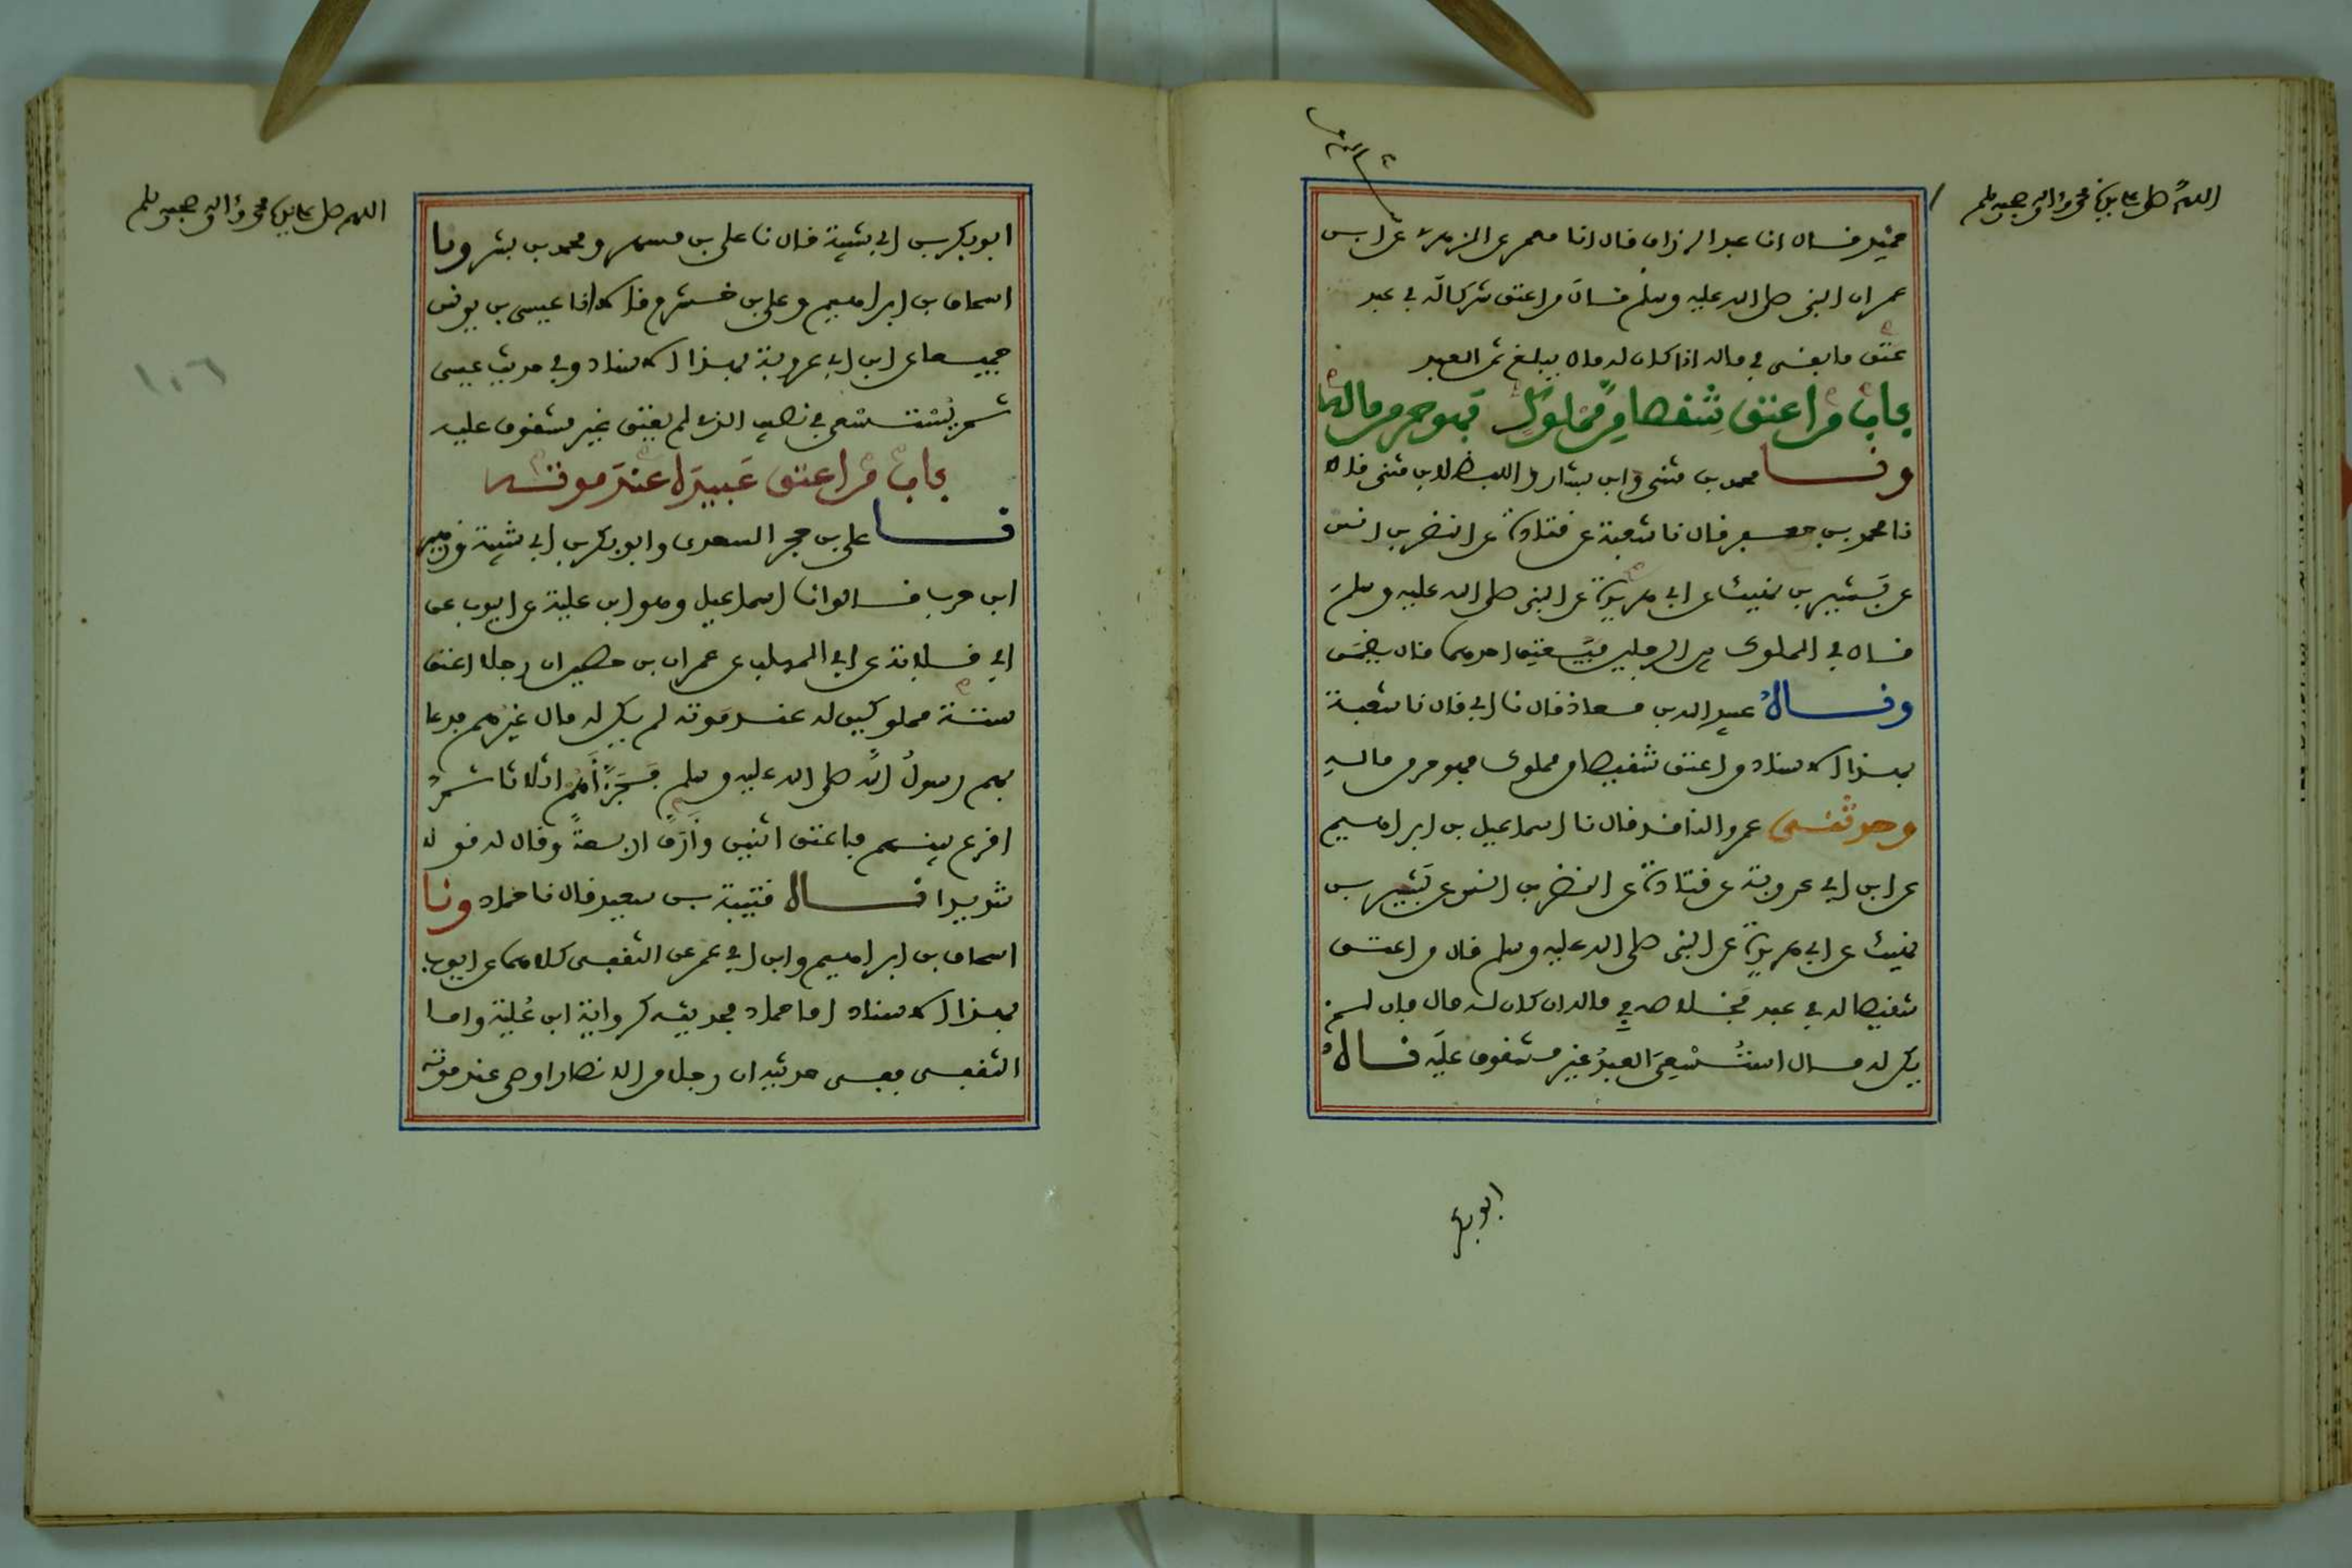 اللهم صل على سيدنا محمد وآله وصحبه وسلم
حميد قال انا عبد الرزاق قال انا معمر عن الزهري عن ابن
عمر ان النبي صلى الله عليه وسلم قال من اعتق شركا له في عبد
عتق ما بقي في ماله اذا كان له مال يبلغ ثمن العبد
باب من اعتق شقصا من مملوك فهو حر من ماله
ونا محمد بن مثنى وابن بشار واللفظ لابن مثنى قالا
نا محمد بن جعفر قال نا شعبة عن قتادة عن النضر بن انس
عن بشير بن نهيك عن ابي هريرة عن النبي صلى الله عليه وسلم
قال في المملوك بين الرجلين فيعتق احدهما قال يضمن
وقال عبيد الله بن معاذ قال نا ابي قال نا شعبة
بهذا الاسناد من اعتق شقيصا من مملوك فهو حر من ماله
وحدثني عمرو الناقد قال نا اسماعيل بن ابراهيم
عن ابن ابي عروبة عن قتادة عن النضر بن انس عن بشير بن
نهيك عن ابي هريرة عن النبي صلى الله عليه وسلم قال من اعتق
شقيصا له في عبد فخلاصه في ماله ان كان له مال فان لم
يكن له مال استسعي العبد غير مشقوق عليه قال
ابو بكر
اللهم صل على سيدنا محمد وآله وصحبه وسلم
١٠٦
ابو بكر بن ابي شيبة قال نا علي بن مسهر ومحمد بن بشر ونا
اسحاق بن ابراهيم وعلي بن خشرم قالا انا عيسى بن يونس
جميعا عن ابن ابي عروبة بهذا الاسناد وفي حديث عيسى
ثم يستسعى في نصيب الذي لم يعتق غير مشقوق عليه
باب من اعتق عبيده عند موته
نا علي بن حجر السعدي وابو بكر بن ابي شيبة وزهير
ابن حرب قالوا نا اسماعيل وهو ابن علية عن ايوب عن
ابي قلابة عن ابي المهلب عن عمران بن حصين ان رجلا اعتق
ستة مملوكين له عند موته لم يكن له مال غيرهم فدعا
بهم رسول الله صلى الله عليه وسلم فجزأهم اثلاثا ثم
اقرع بينهم فاعتق اثنين وارق اربعة وقال له قولا
شديدا قال قتيبة بن سعيد قال نا حماد ونا
اسحاق بن ابراهيم وابن ابي عمر عن الثقفي كلاهما عن ايوب
بهذا الاسناد اما حماد فحديثه كرواية ابن علية واما
الثقفي ففي حديثه ان رجلا من الانصار اوصى عند موته